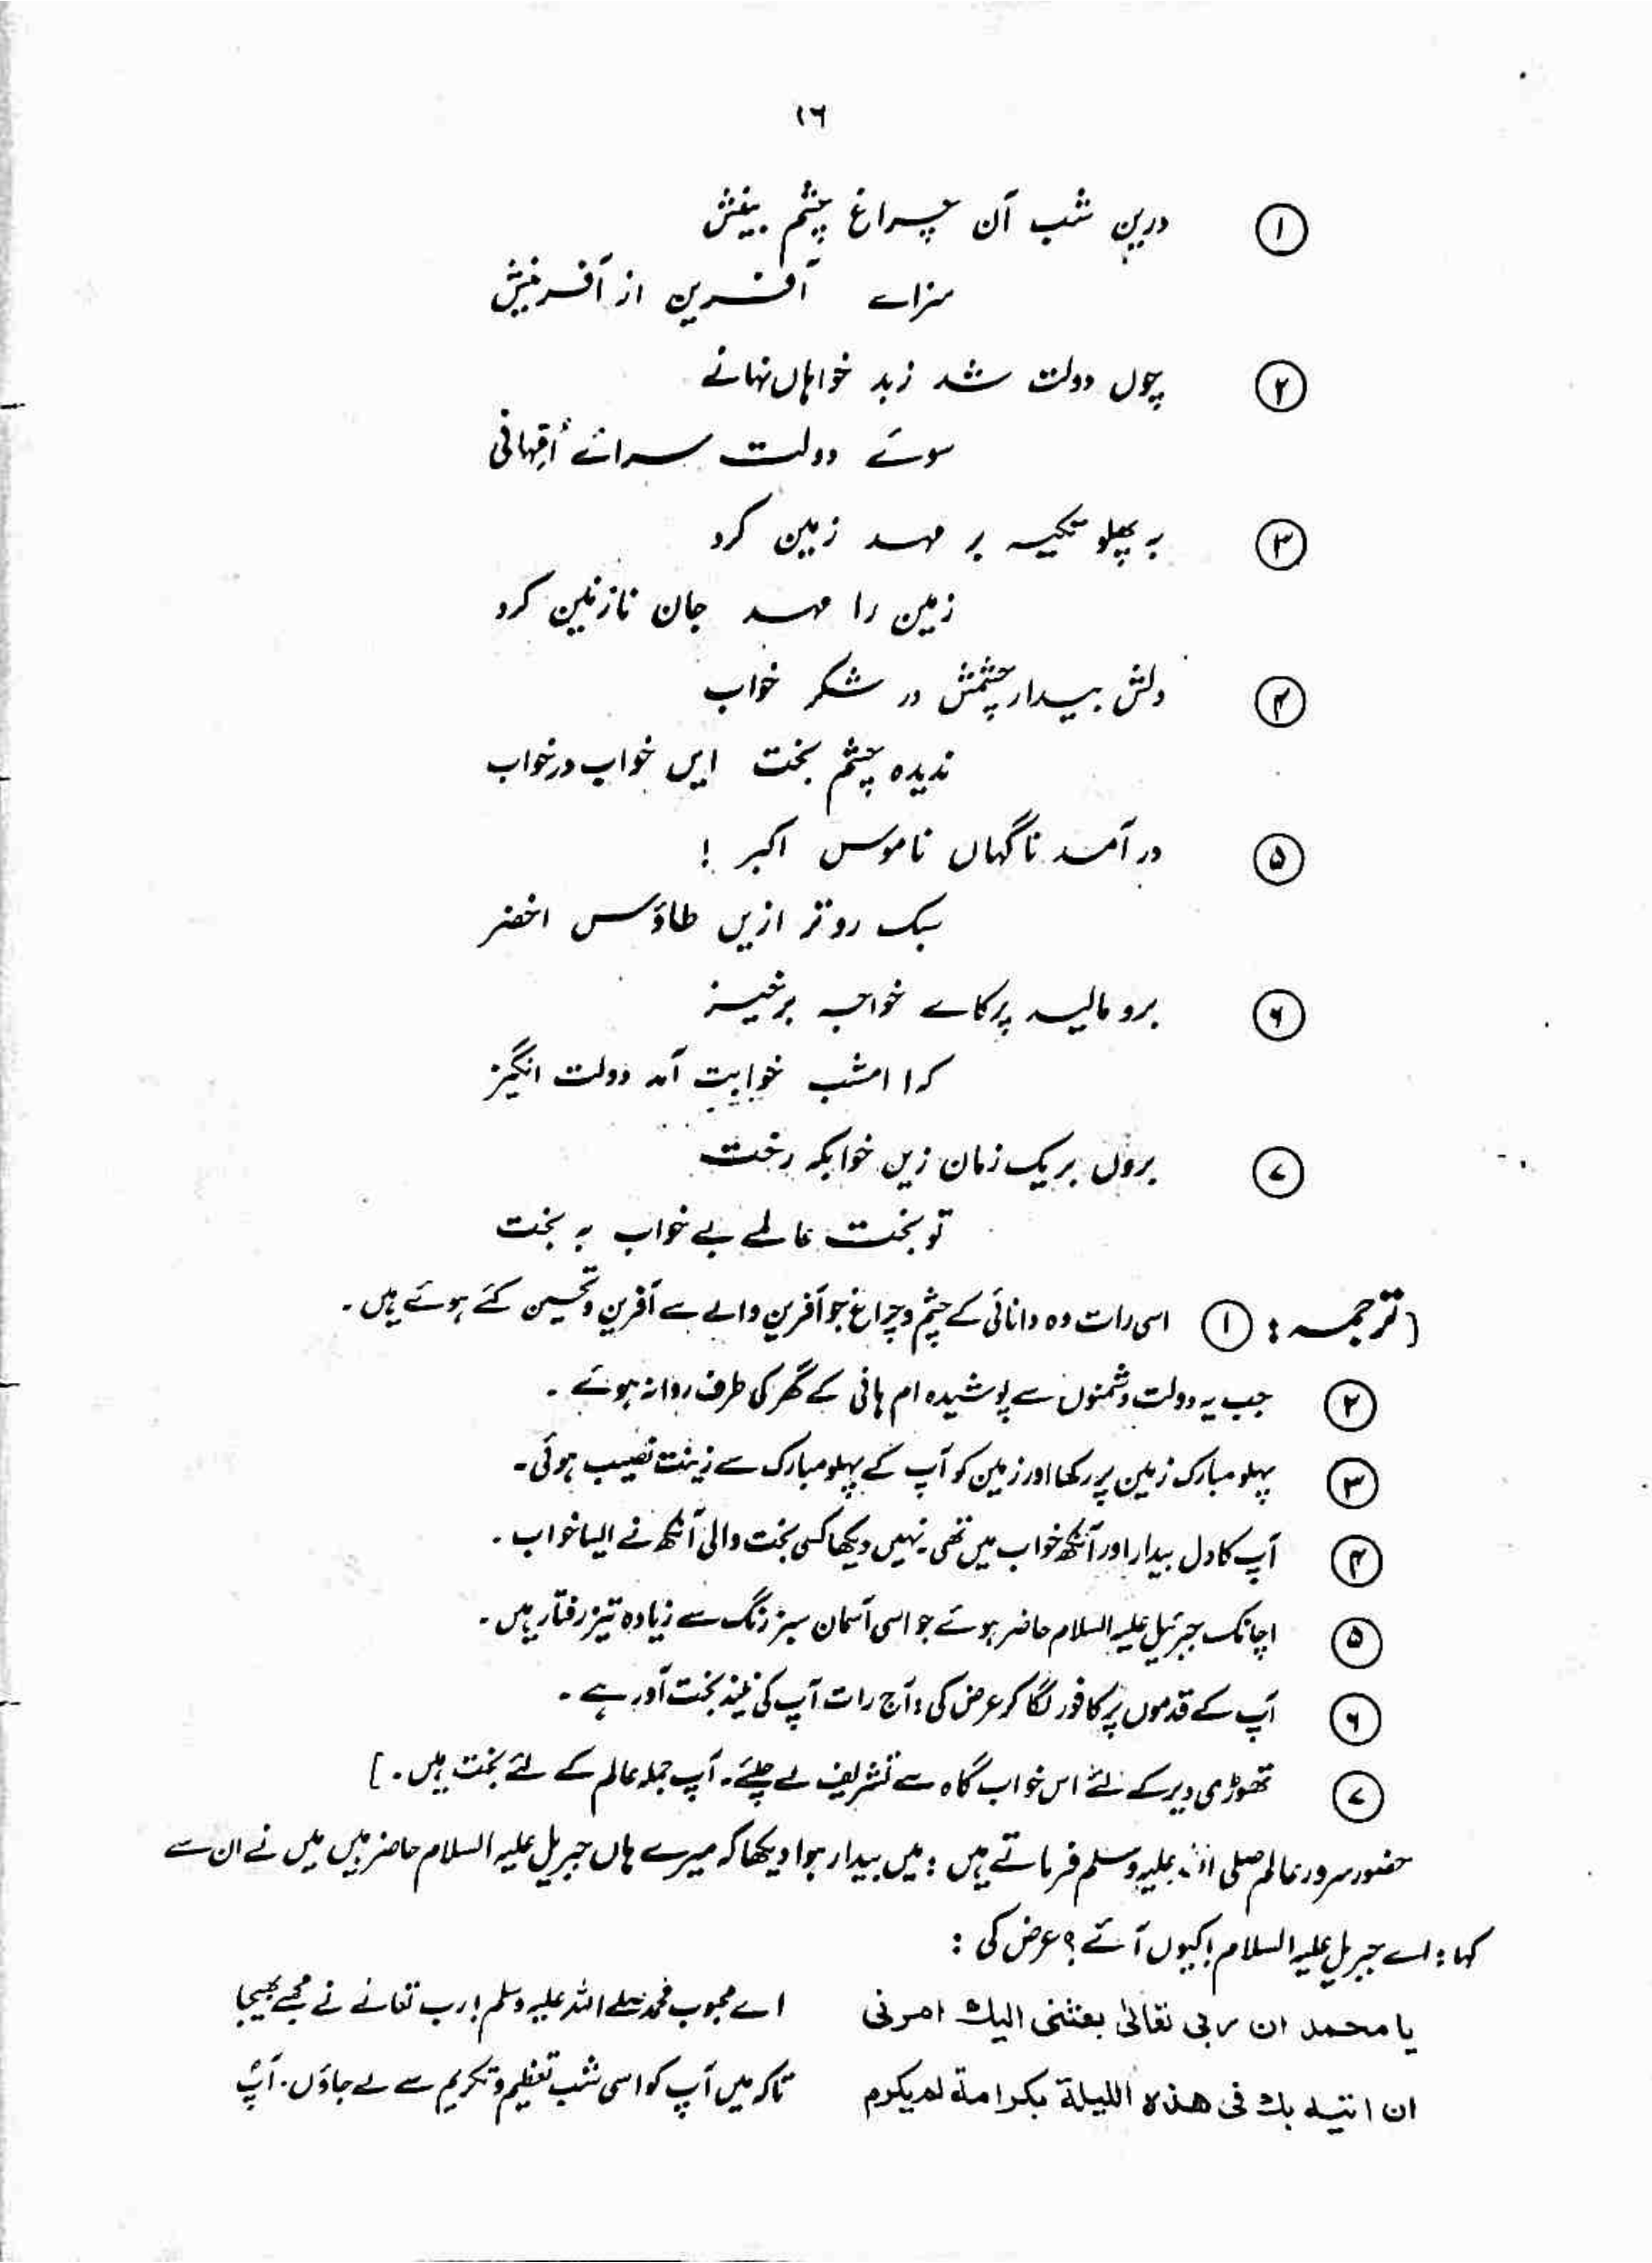 ۱۶
① درین شب آن چراغ چشم بینش
سزاے آفرین از آفرینش
② چوں دولت شد زبد خواہاں نہانے
سوئے دولت سرائے اُمّہانی
③ بہ پہلو تکیہ بر مہد زمین کرد
زمین را مہد جان نازنین کرد
④ دلش بیدار چشمش در شکر خواب
ندیدہ چشم بخت ایں خواب در خواب
⑤ در آمد ناگہاں ناموس اکبر !
سبک رو تر ازیں طاؤس اخضر
۶ برو مالید پرکاے خواجہ برخیز
کہ امشب خوابت آمد دولت انگیز
⑦ بروں بر یک زمان زیں خوابگہ رخت
تو بخت عالمے بے خواب بہ بخت
[ترجمہ : ① اسی رات وہ دانائی کے چشم و چراغ جو آفرین والے سے آفرین و تحسین کئے ہوئے ہیں ۔
② جب یہ دولت دشمنوں سے پوشیدہ ام ہانی کے گھر کی طرف روانہ ہوئے ۔
③ پہلو مبارک زمین پر رکھا اور زمین کو آپ کے پہلو مبارک سے زینت نصیب ہوئی ۔
④ آپ کا دل بیدار اور آنکھ خواب میں تھی ۔ نہیں دیکھا کسی بخت والی آنکھ نے ایسا خواب ۔
⑤ اچانک جبرئیل علیہ السلام حاضر ہوئے جو اسی آسمان سبز رنگ سے زیادہ تیز رفتار ہیں ۔
۶ آپ کے قدموں پر کافور لگا کر عرض کی : آج رات آپ کی نیند بخت آور ہے ۔
⑦ تھوڑی دیر کے لئے اس خواب گاہ سے تشریف لے چلئے ۔ آپ جملہ عالم کے لئے بخت ہیں ۔ ]
حضور سرور عالم صلی اللہ علیہ وسلم فرماتے ہیں : میں بیدار ہوا دیکھا کہ میرے ہاں جبریل علیہ السلام حاضر ہیں میں نے ان سے
کہا : اے جبریل علیہ السلام ! کیوں آئے ؟ عرض کی :
یا محمد ان ربی تعالیٰ بعثنی الیك امرنی اے محبوب محمد صلے اللہ علیہ وسلم ! رب تعالےٰ نے مجھے بھیجا
ان اتیه بك فی هذه اللیلة بکرامة لم یکرم تاکہ میں آپ کو اسی شب تعظیم و تکریم سے لے جاؤں ۔ آپؐ